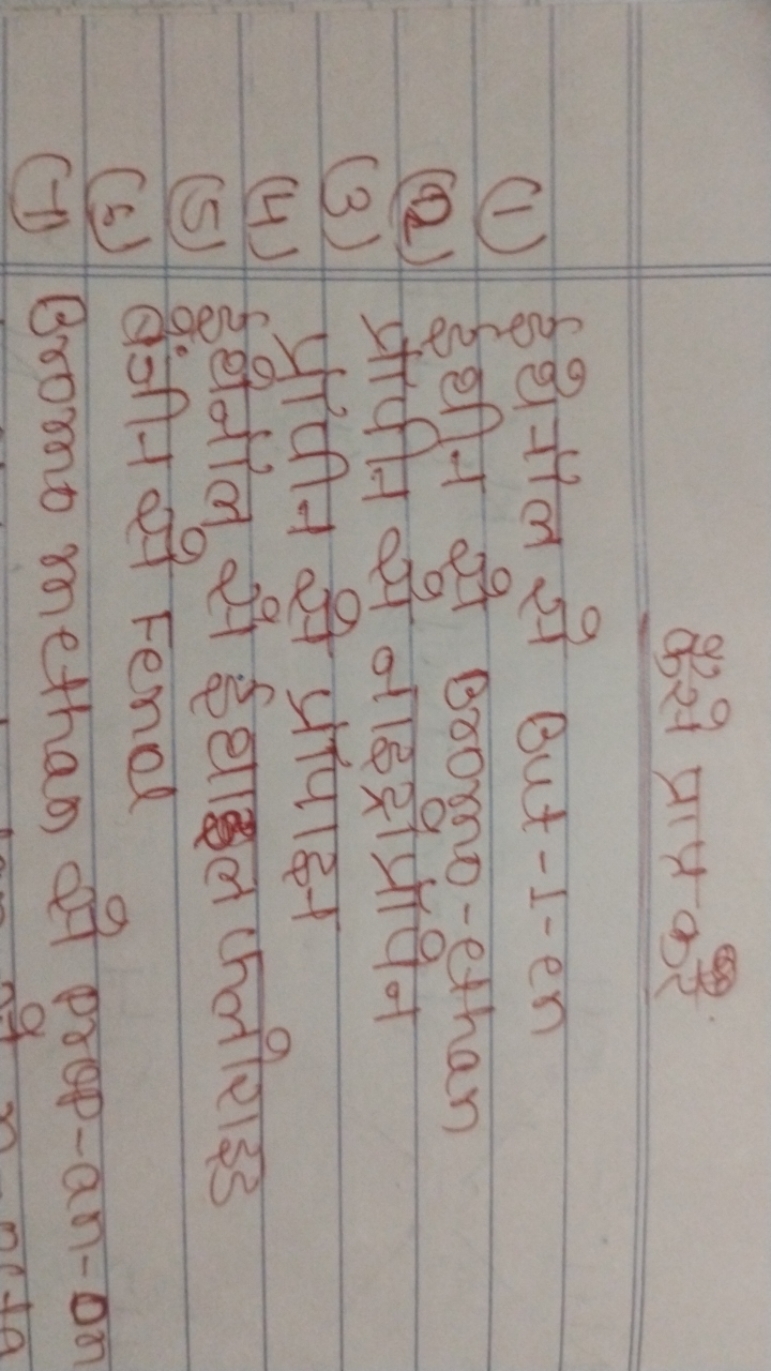 कैसे प्राप्त करें
(1) ईथेनॉल से But-1-en
(2) ईथीन से Bromo-ethan
(3) प्रोपीन से नाइट्रोप्रोपेन
(4) प्रोपीन से प्रोपाइन
(5) ईथेनॉल से ईथाइल फ्लोराइड
(6) बेंजीन से Fenol
(7) Bromo methan से prop-an-on